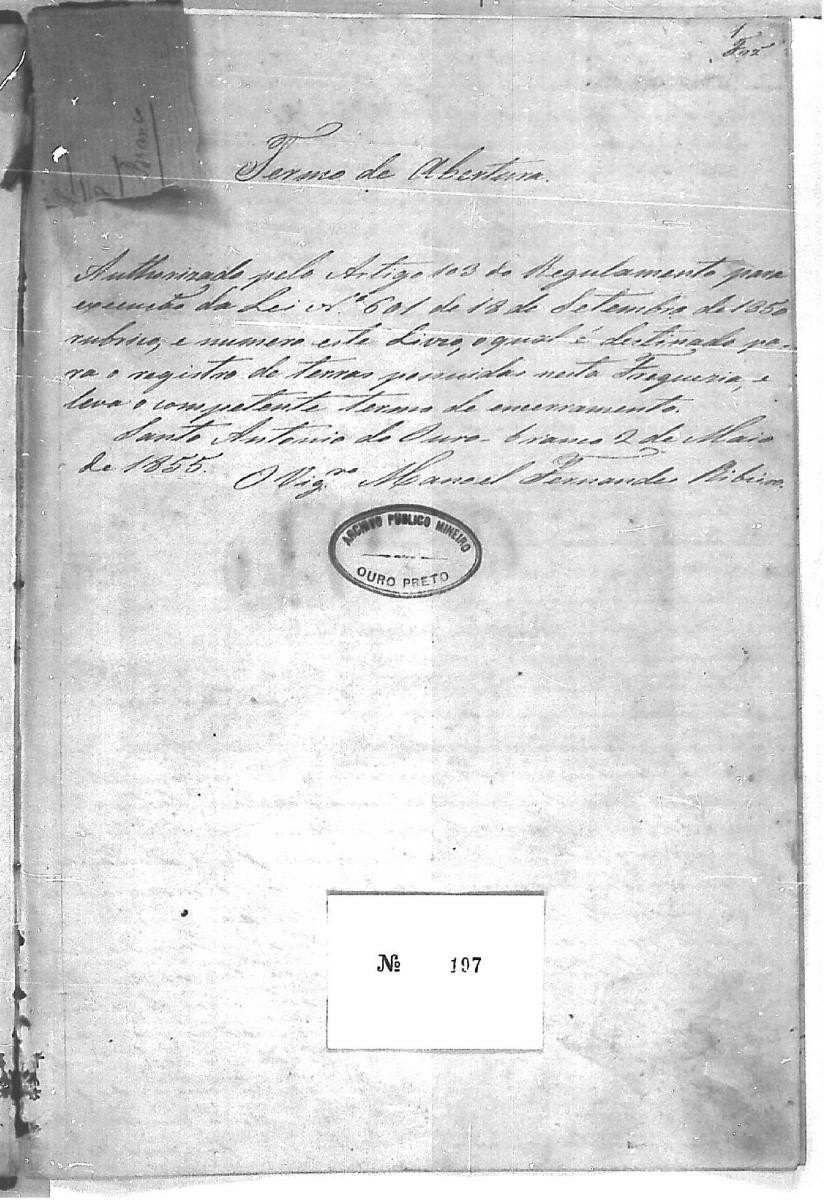 1
Termo de Abertura.
Branco
Authorizado pelo Artigo 103 do Regulamento para
execução da Lei Nº 601 de 18 de Setembro de 1850
rubrico, e numero este Livro, o qual é destinado pa-
ra o registro de terras possuidas nesta Freguezia, e
leva o competente termo de encerramento.
Santo Antonio do Ouro-branco 2 de Maio
de 1855.
O Vigro Manoel Fernandes Ribeiro.
ARCHIVO PUBLICO MINEIRO
OURO PRETO
Nº 197